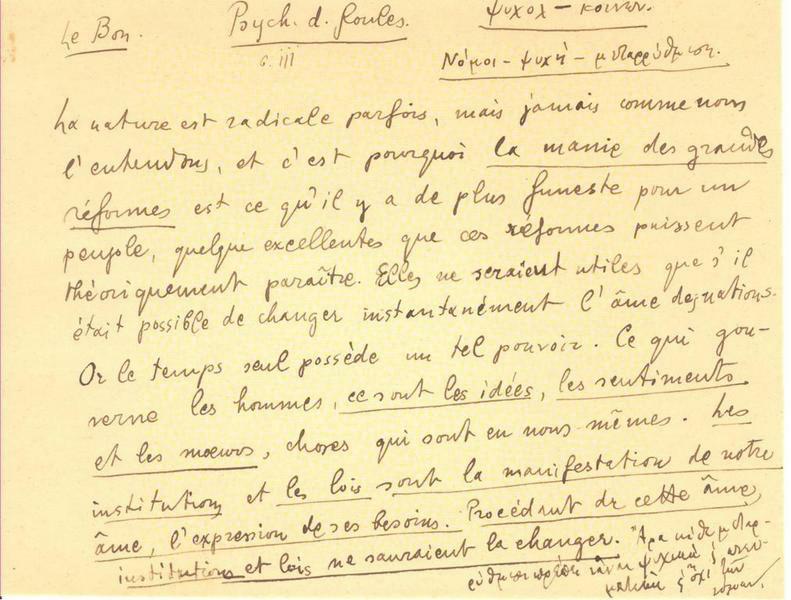 Le Bon. Psych. d. foules. ψυχολ – κοινων.
c. III
Νόμοι – ψυχή – μεταρρύθμισι.
La nature est radicale parfois, mais jamais comme nous
l'entendons, et c'est pourquoi la manie des grandes
réformes est ce qu'il y a de plus funeste pour un
peuple, quelque excellentes que ces réformes puissent
théoriquement paraître. Elles ne seraient utiles que s'il
était possible de changer instantanément l'âme des nations.
Or le temps seul possède un tel pouvoir. Ce qui gou-
verne les hommes, ce sont les idées, les sentiments
et les mœurs, choses qui sont en nous-mêmes. Les
institutions et les lois sont la manifestation de notre
âme, l'expression de ses besoins. Procédant de cette âme,
institutions et lois ne sauraient la changer. Ἄρα πᾶσα μεταρ-
ρύθμισις πρέπει νἆναι ψυχική ἢ πνευ-
ματική ἢ ὄχι τῶν
νόμων.